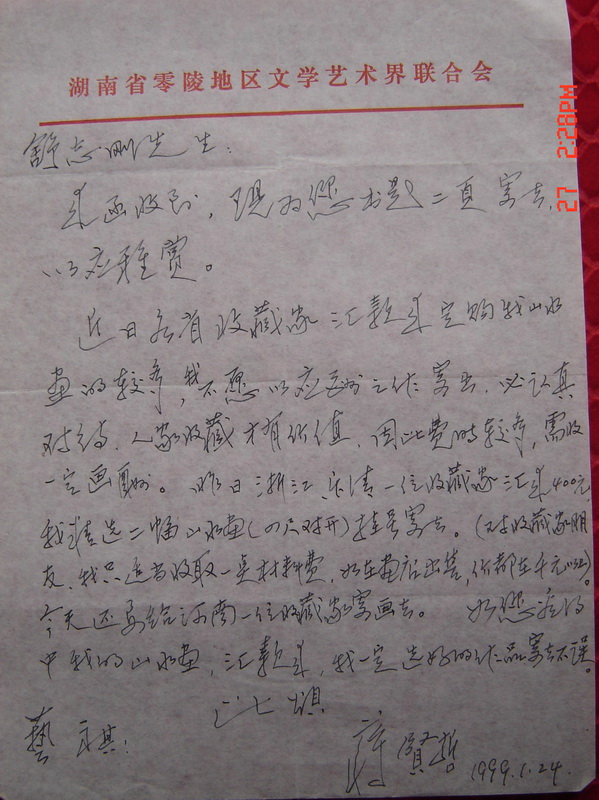 湖南省零陵地区文学艺术界联合会
舒志刚先生:
来函收到，现为您书题二页寄去，
以应雅赏。
近日各省收藏家汇款来定购我山水
画的较多，我不愿以应酬之作寄出，必认真
对待，人家收藏才有价值，因此费时较多，需收
一定画酬。昨日浙江乐清一位收藏家汇来400元，
我精选二幅山水画(四尺对开)挂号寄去。(对收藏家朋
友，我只适当收取一点材料费，如在画店出售，价都在千元以上)。
今天还要给河南一位收藏家寄画去。如您看得
中我的山水画，汇款来，我一定选好的作品寄去不误。
匆匕 颂
藝祺:
賢哲 1999.1.24.
27 2:28PM